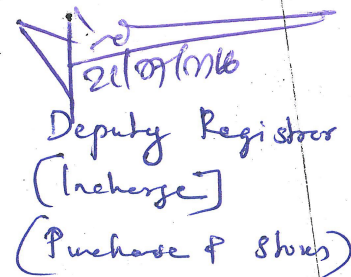 Deputy Registrar
[Incharge]
(Purchase & Stores)